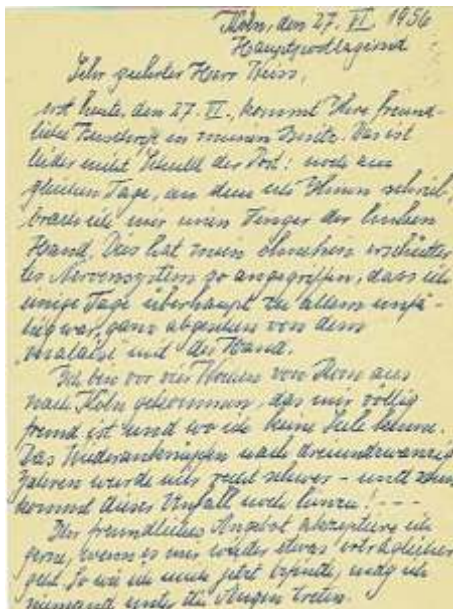 Köln, den 27. VI. 1956
Hauptpostlagernd
Sehr geehrter Herr Heiss,
erst heute, den 27. VI., kommt Ihre freund-
liche Zuschrift in meinen Besitz. Das ist
leider nicht Schuld der Post: noch am
gleichen Tage, an dem ich Ihnen schrieb,
brach ich mir einen Finger der linken
Hand. Das hat mein ohnehin erschütter
tes Nervensystem so angegriffen, dass ich
einige Tage überhaupt zu allem unfä-
hig war, ganz abgesehen von dem
malaise mit der Hand.
Ich bin vor vier Wochen von Rom aus
nach Köln gekommen, das mir völlig
fremd ist und wo ich keine Seele kenne.
Das Wiederanknüpfen nach dreiundzwanzig
Jahren wurde mir recht schwer - und nun
kommt dieser Unfall noch hinzu! - - -
Ihr freundliches Angebot akzeptiere ich
gerne, wenn es mir wieder etwas erträglicher
geht. So wie ich mich jetzt befinde, mag ich
niemand unter die Augen treten.